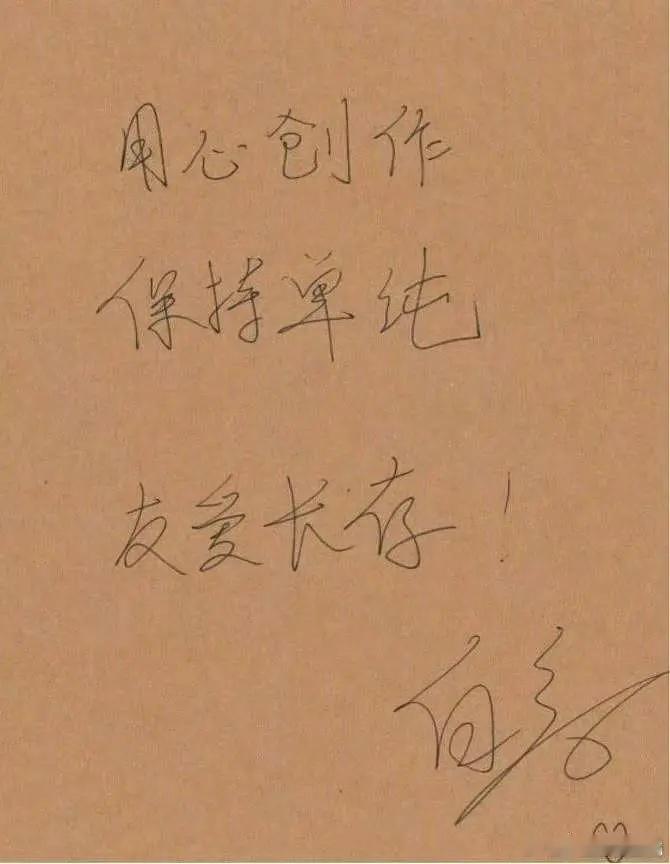 用心创作
保持单纯
友爱长存！
白